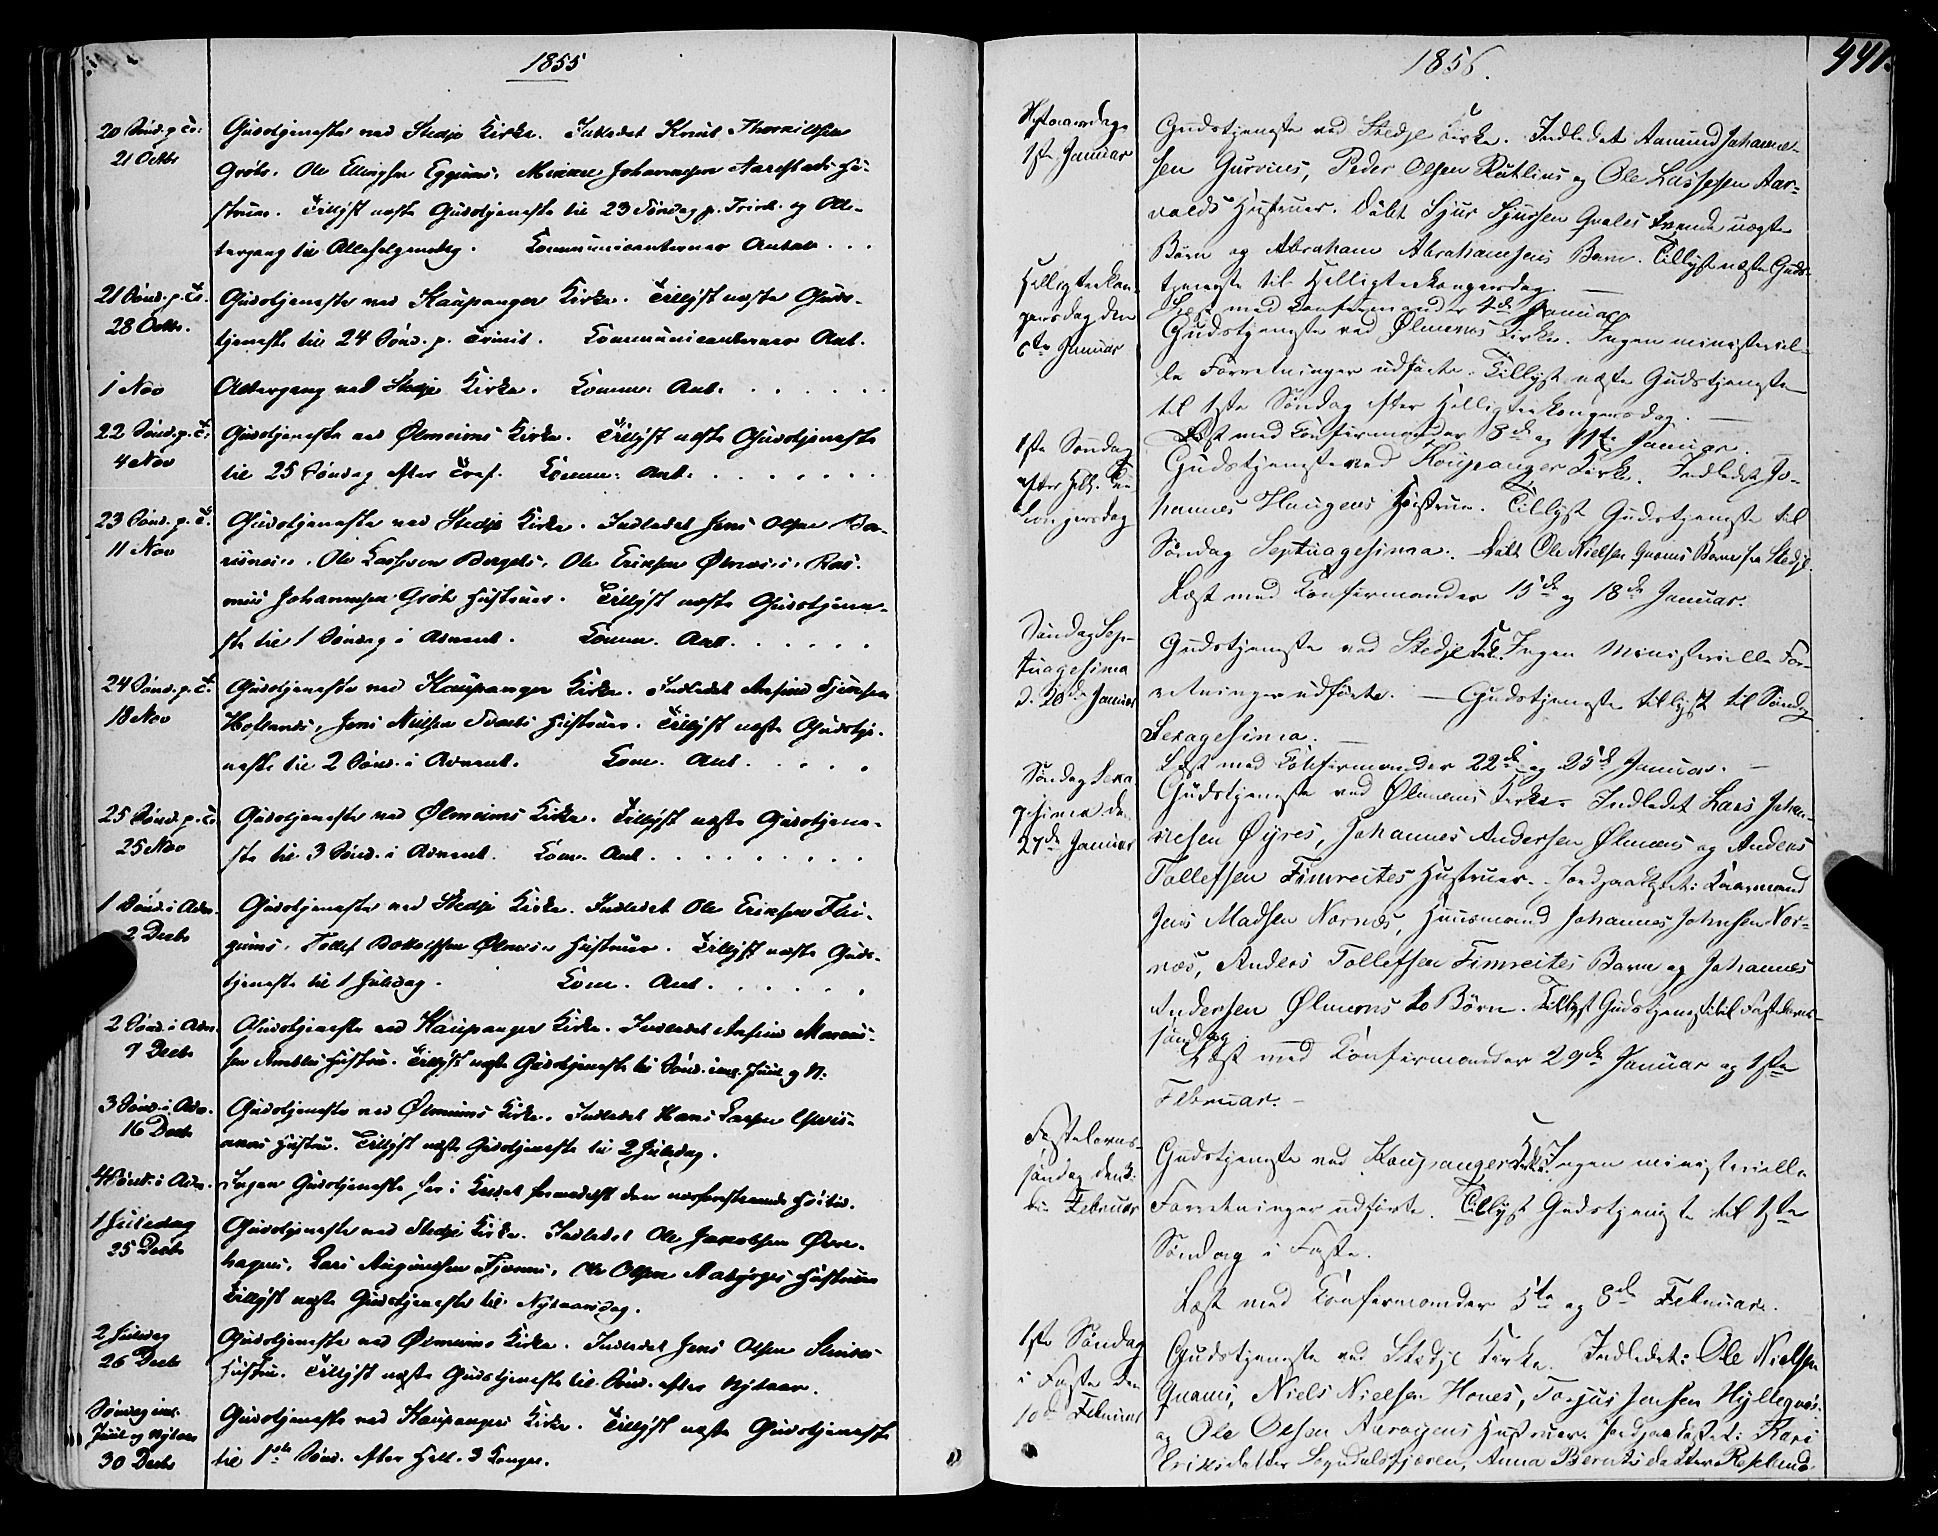 1855
20 Sönd. p. Tr:
21 Octbr
Gudstjeneste ved Stedje Kirke. Indledet Knud
Ole Ellingsen Eggums, Mikkel Johannesen Aarestads Hu-
struer. Tillyst næste Gudstjeneste til 23 Söndag p. Trinit. og Al-
tergang til Allehelgensdag. Communicanternes Antal . . .
21 Sönd. p. Tr.
28 Octbr.
Gudstjeneste ved Kaupanger Kirke. Tillyst næste Guds-
tjeneste til 24 Sönd. p. Trinit. Communicanternes Ant.
1 Nov
Altergang ved Stedje Kirke. Comm: Ant. . . . . .
22 Sönd. p. T:
4 Nov
Gudstjeneste ved Ølmeims Kirke. Tillyst næste Gudstjeneste
til 25 Söndag efter Tref. Comm: Ant. . . . . . .
23 Sönd. p. T.
11 Nov
Gudstjeneste ved Stedje Kirke. Indledet Jens Olsen
Ole Eriksen Ras-
mus Johannesen Hustruer. Tillyst næste Gudstjene-
ste til 1 Söndag i Advent. Comm. Ant. . . . . .
24 Sönd. p. T.
18 Nov
Gudstjeneste ved Kaupanger Kirke. Indledet Ansjen
Hovlands, Jens Nielsen Hustruer. Tillyst næste Gudstje-
neste til 2 Sönd. i Advent. Com. Ant. . . . .
25 Sönd. p. Tr.
25 Nov
Gudstjeneste ved Ølmeims Kirke. Tillyst næste Gudstjene-
ste til 3 Sönd. i Advent. Com. Ant. . . . . . . .
1 Sönd. i Adv.
2 Decbr
Gudstjeneste ved Stedje Kirke. Indledet Ole Eriksen Flu-
gums, Tollef Hustruer. Tillyst næste Guds-
tjeneste til 1 Juledag. Com. Ant. . . . . . .
2 Sönd. i Adv.
9 Decbr
Gudstjeneste ved Kaupanger Kirke. Indledet Ansjen
sen Amble Hustru. Tillyst næste Gudstjeneste til Sönd. iml. Juul og N:
3 Sönd. i Adv.
16 Decbr
Gudstjeneste ved Ølmeims Kirke. Indledet Hans Larsen
Hustru. Tillyst næste Gudstjeneste til 2 Juledag.
4 Sönd. i Adv.
Ingen Gudstjeneste her i Kaldet formedelst den nærforestaaende Höitid.
1 Juledag
25 Decbr
Gudstjeneste ved Stedje Kirke. Indledet Ole Jacobsen Øvre-
hagens, Lars Ole Olsen Hustruer
Tillyst næste Gudstjeneste til Nytaarsdag.
2 Juledag
26 Decbr
Gudstjeneste ved Ølmeims Kirke. Indledet Jens Olsen
Hustru. Tillyst næste Gudstjeneste til Sönd. efter Nytaar.
Söndag iml.
Juul og Nytaar
30 Decbr
Gudstjeneste ved Kaupanger Kirke. Tillyst næste Gudstjeneste
til 1ste Sönd. efter Hell. 3 Konger.
1856.
441.
Nytaarsdag
1ste Januar
Gudstjeneste ved Stedje Kirke. Indledet Aamund Johanne-
sen Gurvins, Peder Olsen Rutlins og Ole Lassesen Aar-
valds Hustruer. Døbt Sjur Sjursen Qvales tvende uægte
Børn og Abraham Abrahamsens Barn. Tillyst næste Guds-
tjeneste til Helligtrekongersdag. —
Læst med Confirmander 4de Januar
Helligtrekon-
gersdag den
6te Januar
Gudstjeneste ved Ølmems Kirke. Ingen ministeriel-
le Forretninger udførte. Tillyst næste Gudstjeneste
til 1ste Søndag efter Helligtrekongersdag. —
Læst med Confirmander 8de og 11te Januar.
1ste Søndag
efter Hell. Tre-
kongersdag
Gudstjeneste ved Kaupanger Kirke. Indledet Jo-
hannes Haugens Hustrue. Tillyst Gudstjeneste til
Søndag Septuagesima. Døbt Ole Nielsen Qvams Barn fra Stedje.
Læst med Confirmander 15de og 18de Januar.
Søndag Sep-
tuagesima
d. 20de Januar
Gudstjeneste ved Stedje K. Ingen Ministerielle For-
retninger udførte. — Gudstjeneste tillyst til Søndag
Sexagesima. —
Læst med Confirmander 22de og 25de Januar. —
Søndag Sexa-
gesima de
27de Januar
Gudstjeneste ved Ølmems Kirke. Indledet Lars Johan-
nesen Øyres, Johannes Andersen Ølmems og Anders
Tollefsen Fimreites Hustruer. Jordpaakastet: Kaarmand
Jens Madsen Nornæs, Huusmand Johannes Johnsen Nor-
næs, Anders Tollefsen Fimreites Barn og Johannes
Andersen Ølmems to Børn. Tillyst Gudstjeneste til Fastelavns-
søndag.
Læst med Confirmander 29de Januar og 1ste
Februar. —
Fastelavns-
søndag den 3-
die Februar
Gudstjeneste ved Kaupanger Kirke. Ingen ministerielle
Forretninger udførte. Tillyst Gudstjeneste til 1ste
Søndag i Faste.
Læst med Confirmander 5te og 8de Februar.
1ste Søndag
i Faste den
10de Februar
Gudstjeneste ved Stedje Kirke. Indledet: Ole Nielsen
Qvams, Niels Nielsen Hones, Torjus Jensen
og Ole Olsen Hustruer. Jordpaakastet: Kari
Eriksdatter Sogndalsfjæren, Anna Berntsdatter